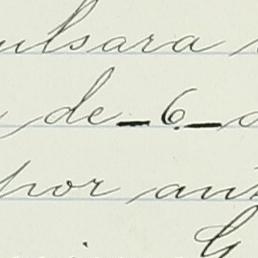 ulsara
de _6_
por ant
G